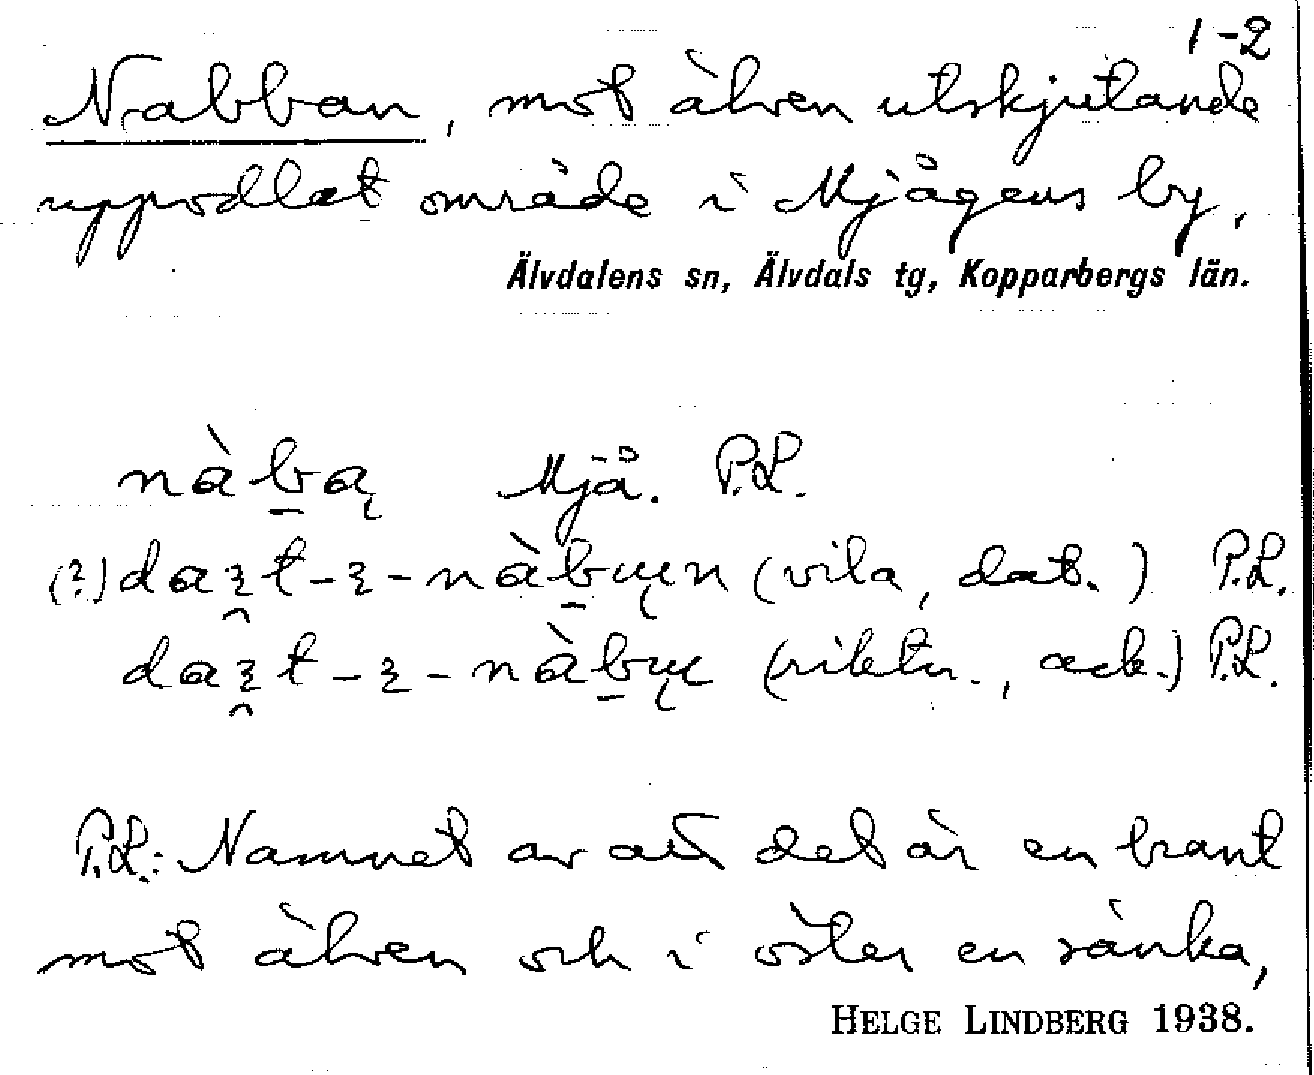 1-2
Nabban, mot älven utskjutande
uppodlat område i Mjågens by,
Älvdalens sn, Älvdals tg, Kopparbergs län.
nàb̲ą Mjå. P.L.
(?) (vila, dat.) P.L.
(riktn., ack.) P.L.
P.L.: Namnet av att det är en brant
mot älven och i öster en sänka,
HELGE LINDBERG 1938.